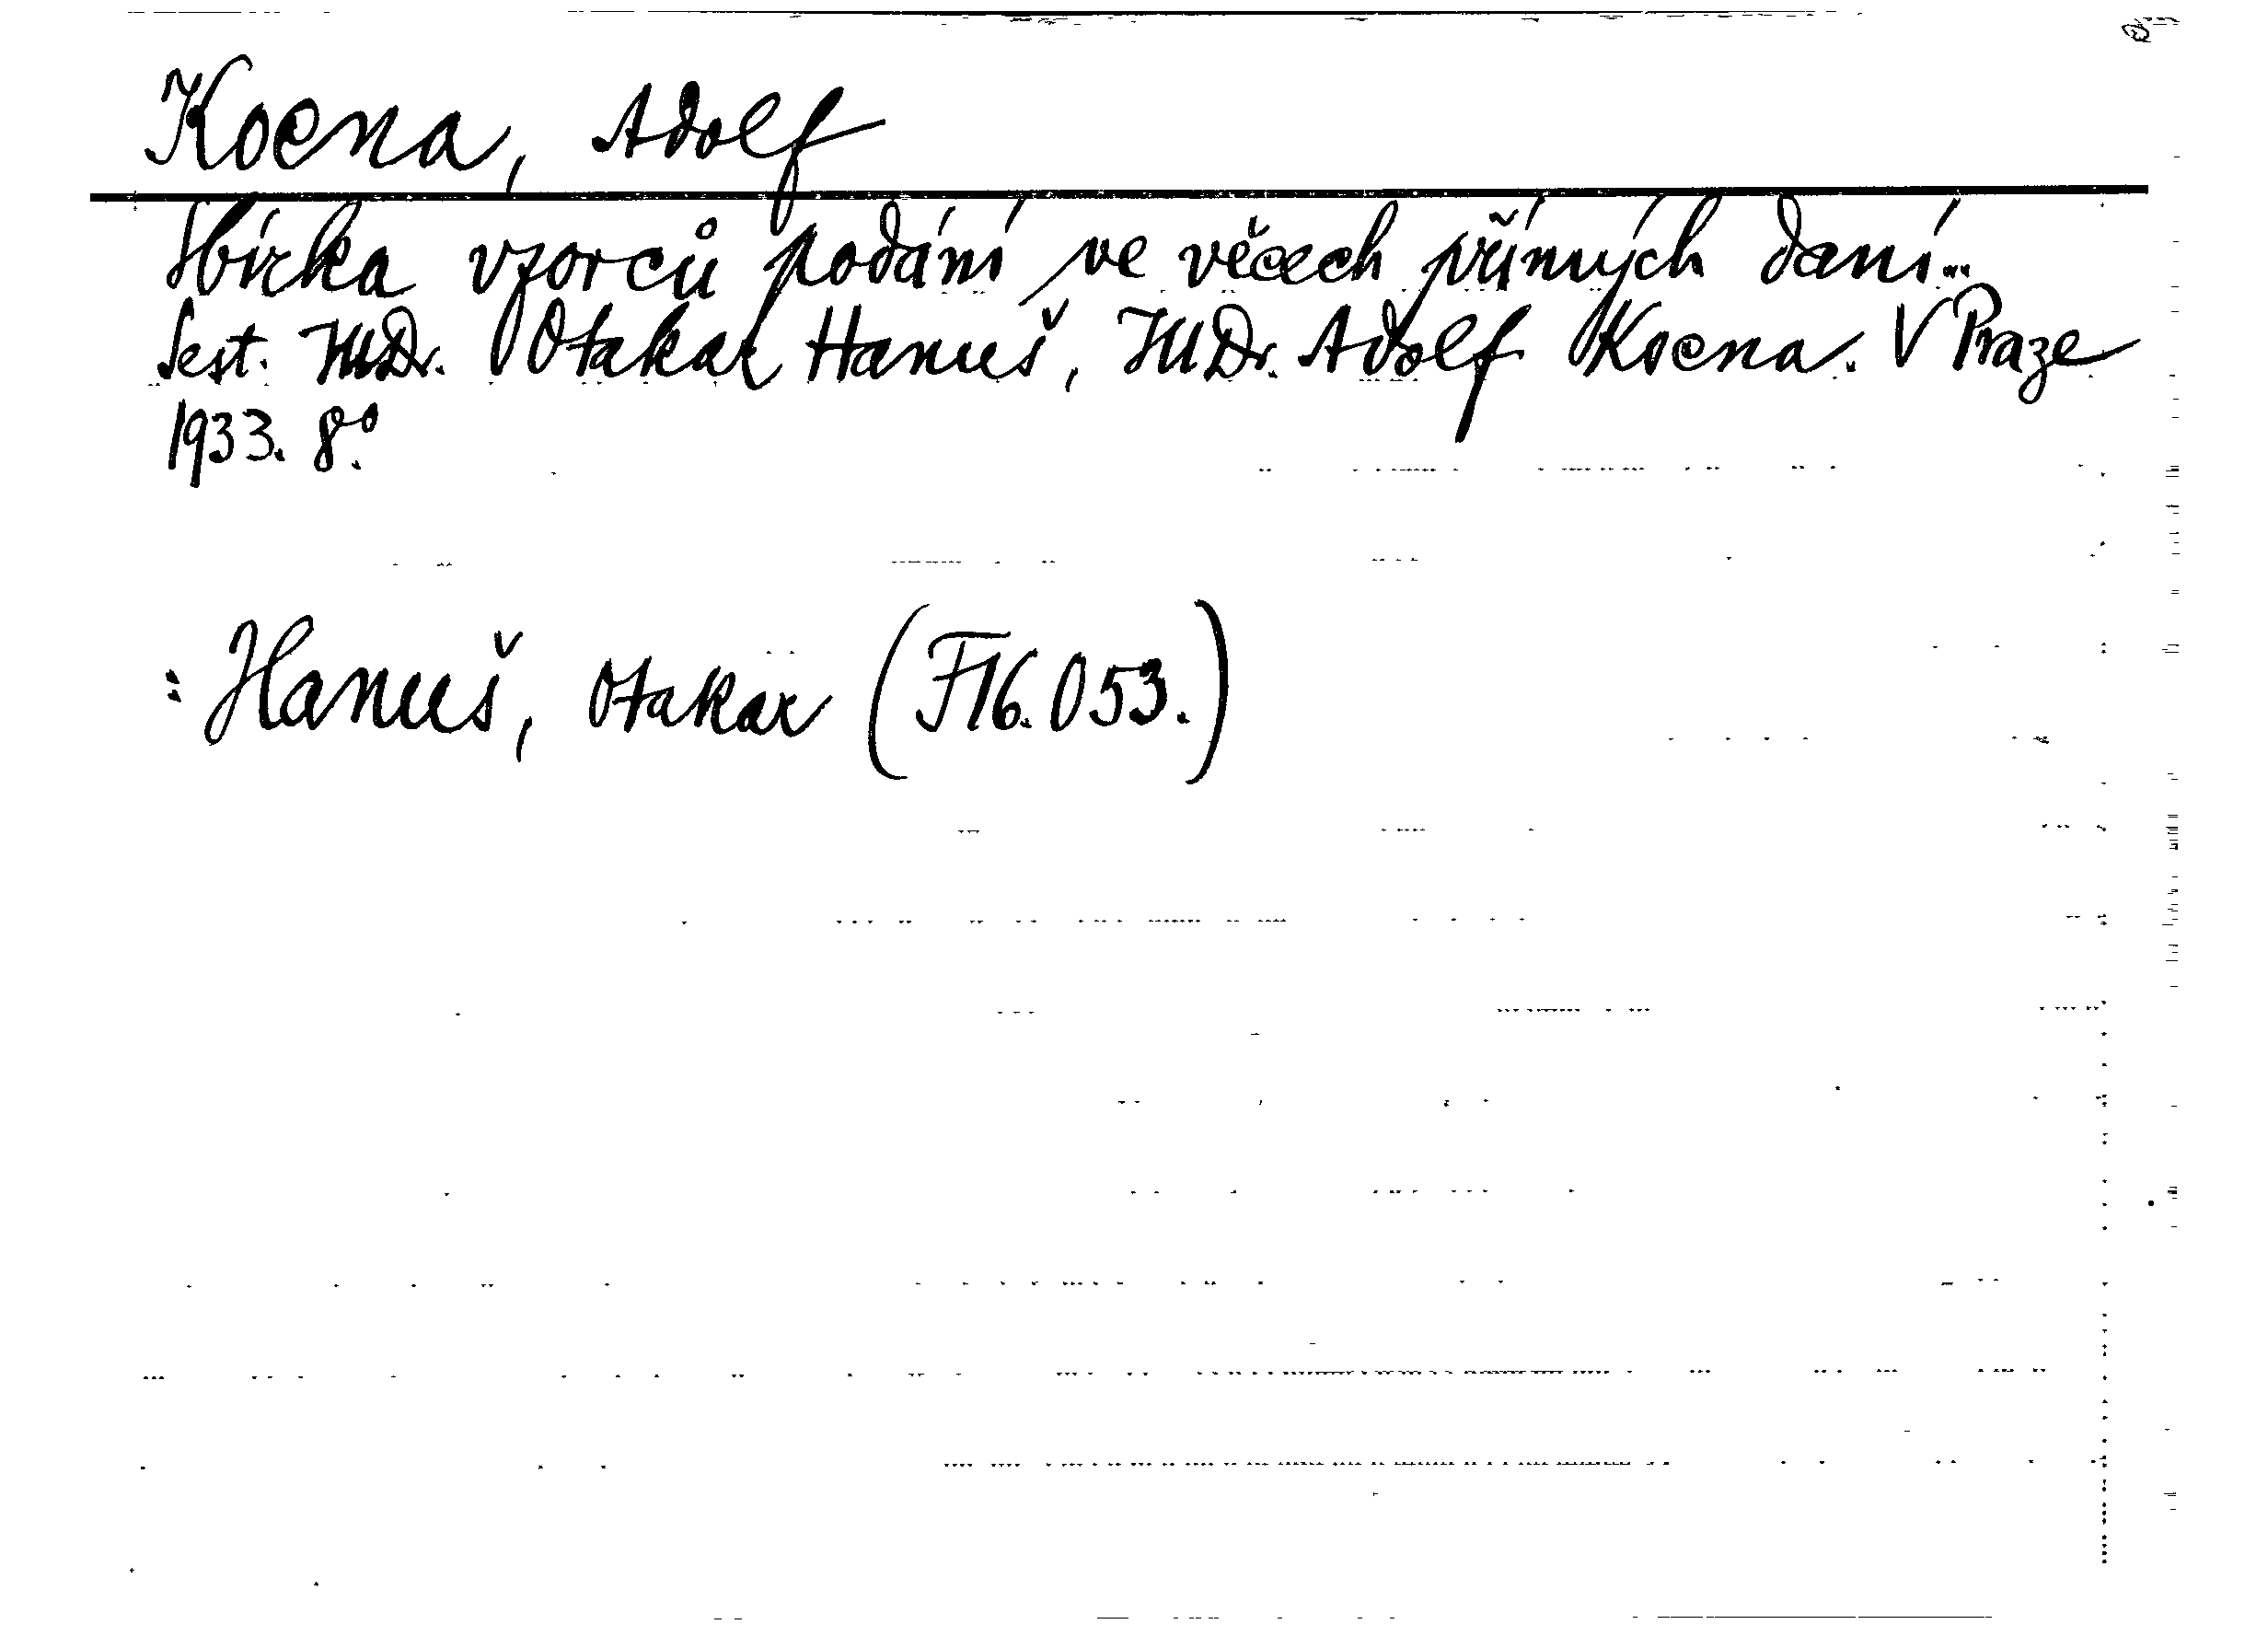 Kocna, Adolf
Sbírka vzorců podání ve věcech přímých daní...
Sest. JUDr. Otakar Hanuš, JUDr. Adolf Kocna. V Praze
1933. 8°.
: Hanuš, Otakar (F 16.053.)